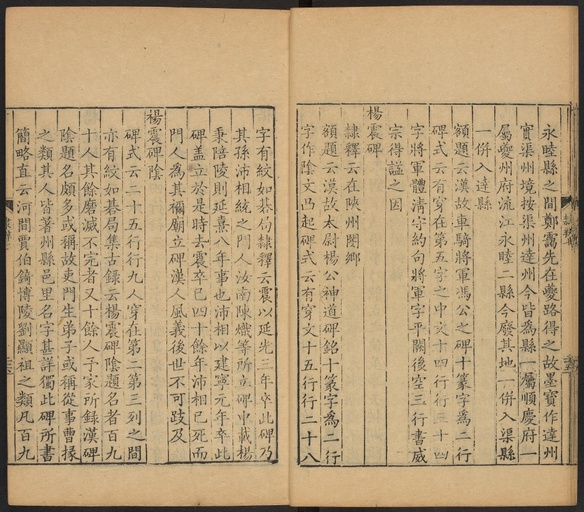 永睦縣之間鄭靄先在夔路得之故墨寶作達州
實渠州境按渠州達州今皆為縣一屬順慶府一
屬夔州府流江永睦二縣今廢其地一併入渠縣
一併入達縣
額題云漢故車騎將軍馮公之碑十篆字為二行
碑式云有穿在第五字之中文十四行行三十四
字將軍體清字約句將軍字平闕後空三行書威
宗得謚之因
楊震碑
隸釋云在陝州閿鄉
額題云漢故太尉楊公神道碑銘十篆字為二行
字作陰文凸起碑式云有穿文十五行行二十八
字有紋如棊局隸釋云震以延光三年卒此碑乃
其孫沛相統之門人汝南陳熾等所立碑中載楊
秉陪陵則延熹八年事也沛相以建寧元年卒此
碑盖立於是時去震卒已四十餘年沛相已死而
門人為其禰廟立碑漢人風義後世不可跂及
楊震碑陰
碑式云二十五行行九人穿在第二第三列之間
亦有紋如棊局集古録云楊震碑陰題名者百九
十人其餘磨滅不完者又十餘人予家所録漢碑
陰題名頗多或稱故吏門生弟子或稱從事曹掾
之類其人皆著州縣邑里名字甚詳獨此碑所書
簡略直云河間賈伯錡博陵劉顯祖之類凡百九